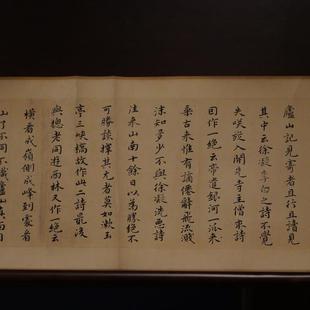 廬山記見寄者且行且讀見
其中云徐凝李白之詩不覺
失咲從入開先寺主僧求詩
因作一絕云帝遣銀河一派来
垂古来惟有謫僊辭飛流濺
沫知多少不與徐凝洗惡詩
往来山南十餘日以為勝絕不
可勝談擇其尤者莫如漱玉
亭三峽橋故作此二詩最後
與揔老同遊西林又作一絕云
橫看成嶺側成峰到處看
山了不同不識廬山真面目